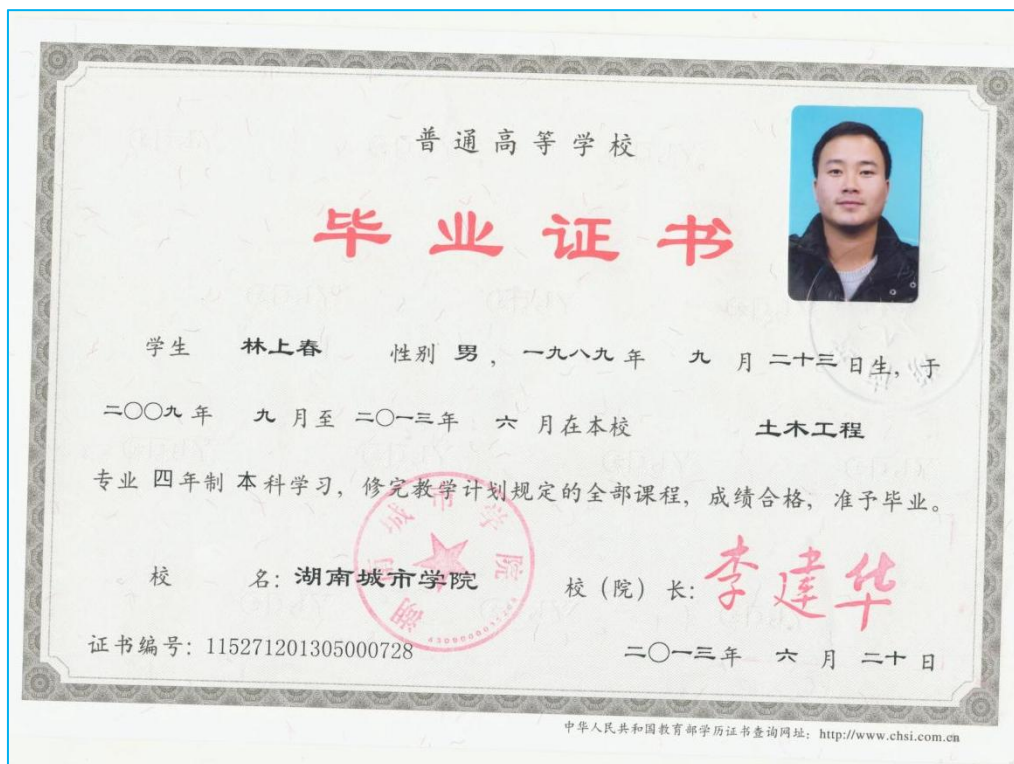 普通高等学校
毕业证书
学生 林上春 性别 男，一九八九 年 九 月 二十三 日生，于
二〇〇九 年 九 月至 二〇一三年 六 月在本校 土木工程
专业 四年制 本 科学习，修完教学计划规定的全部课程，成绩合格，准予毕业。
湖南城市学院
校 名：湖南城市学院 校（院）长：李建华
证书编号：115271201305000728 二〇一三年 六 月 二十 日
中华人民共和国教育部学历证书查询网址：http://www.chsi.com.cn